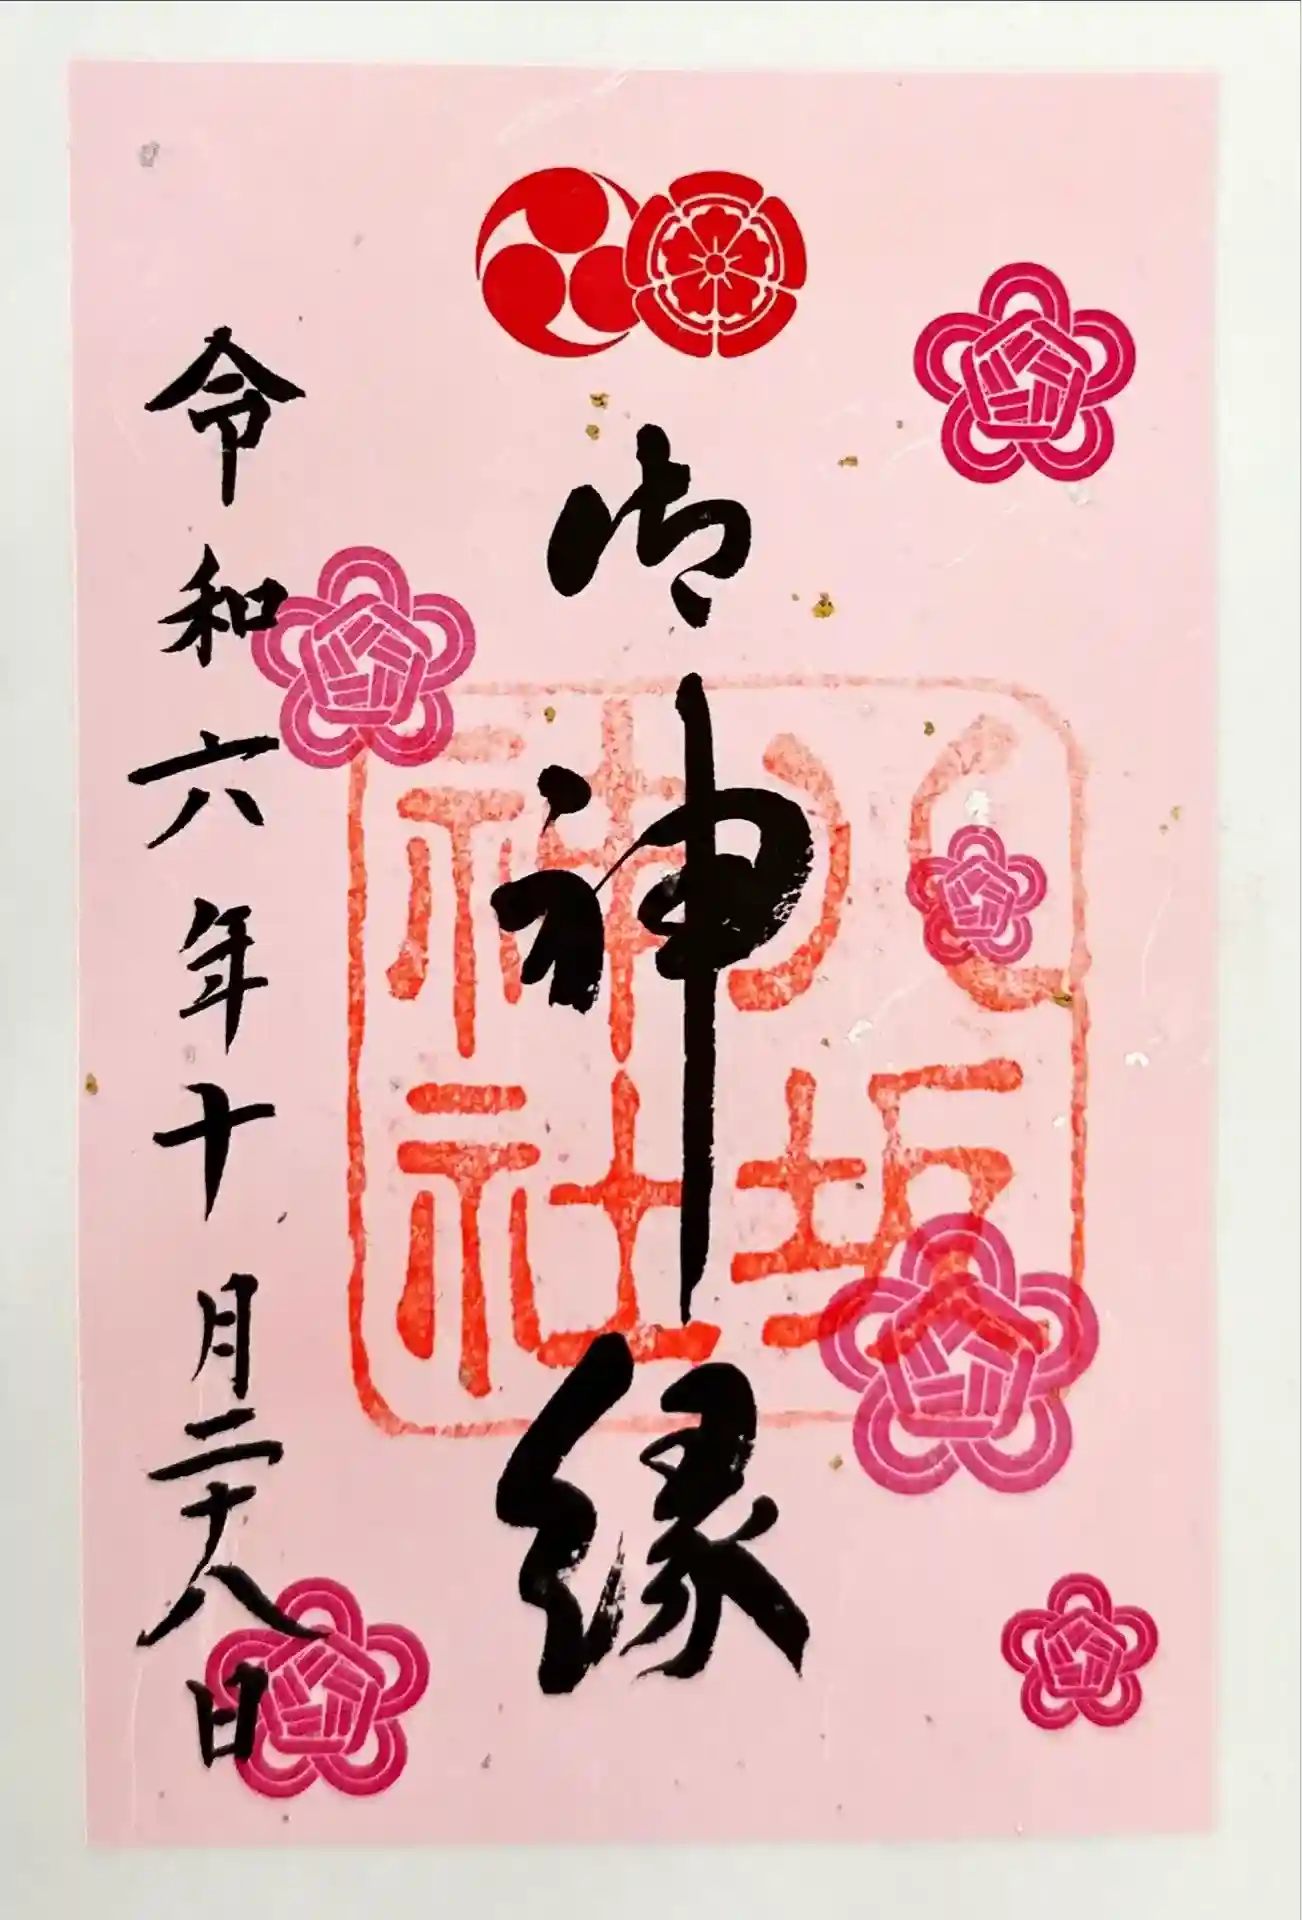 御神縁
八坂
神社
令和六年十月二十八日